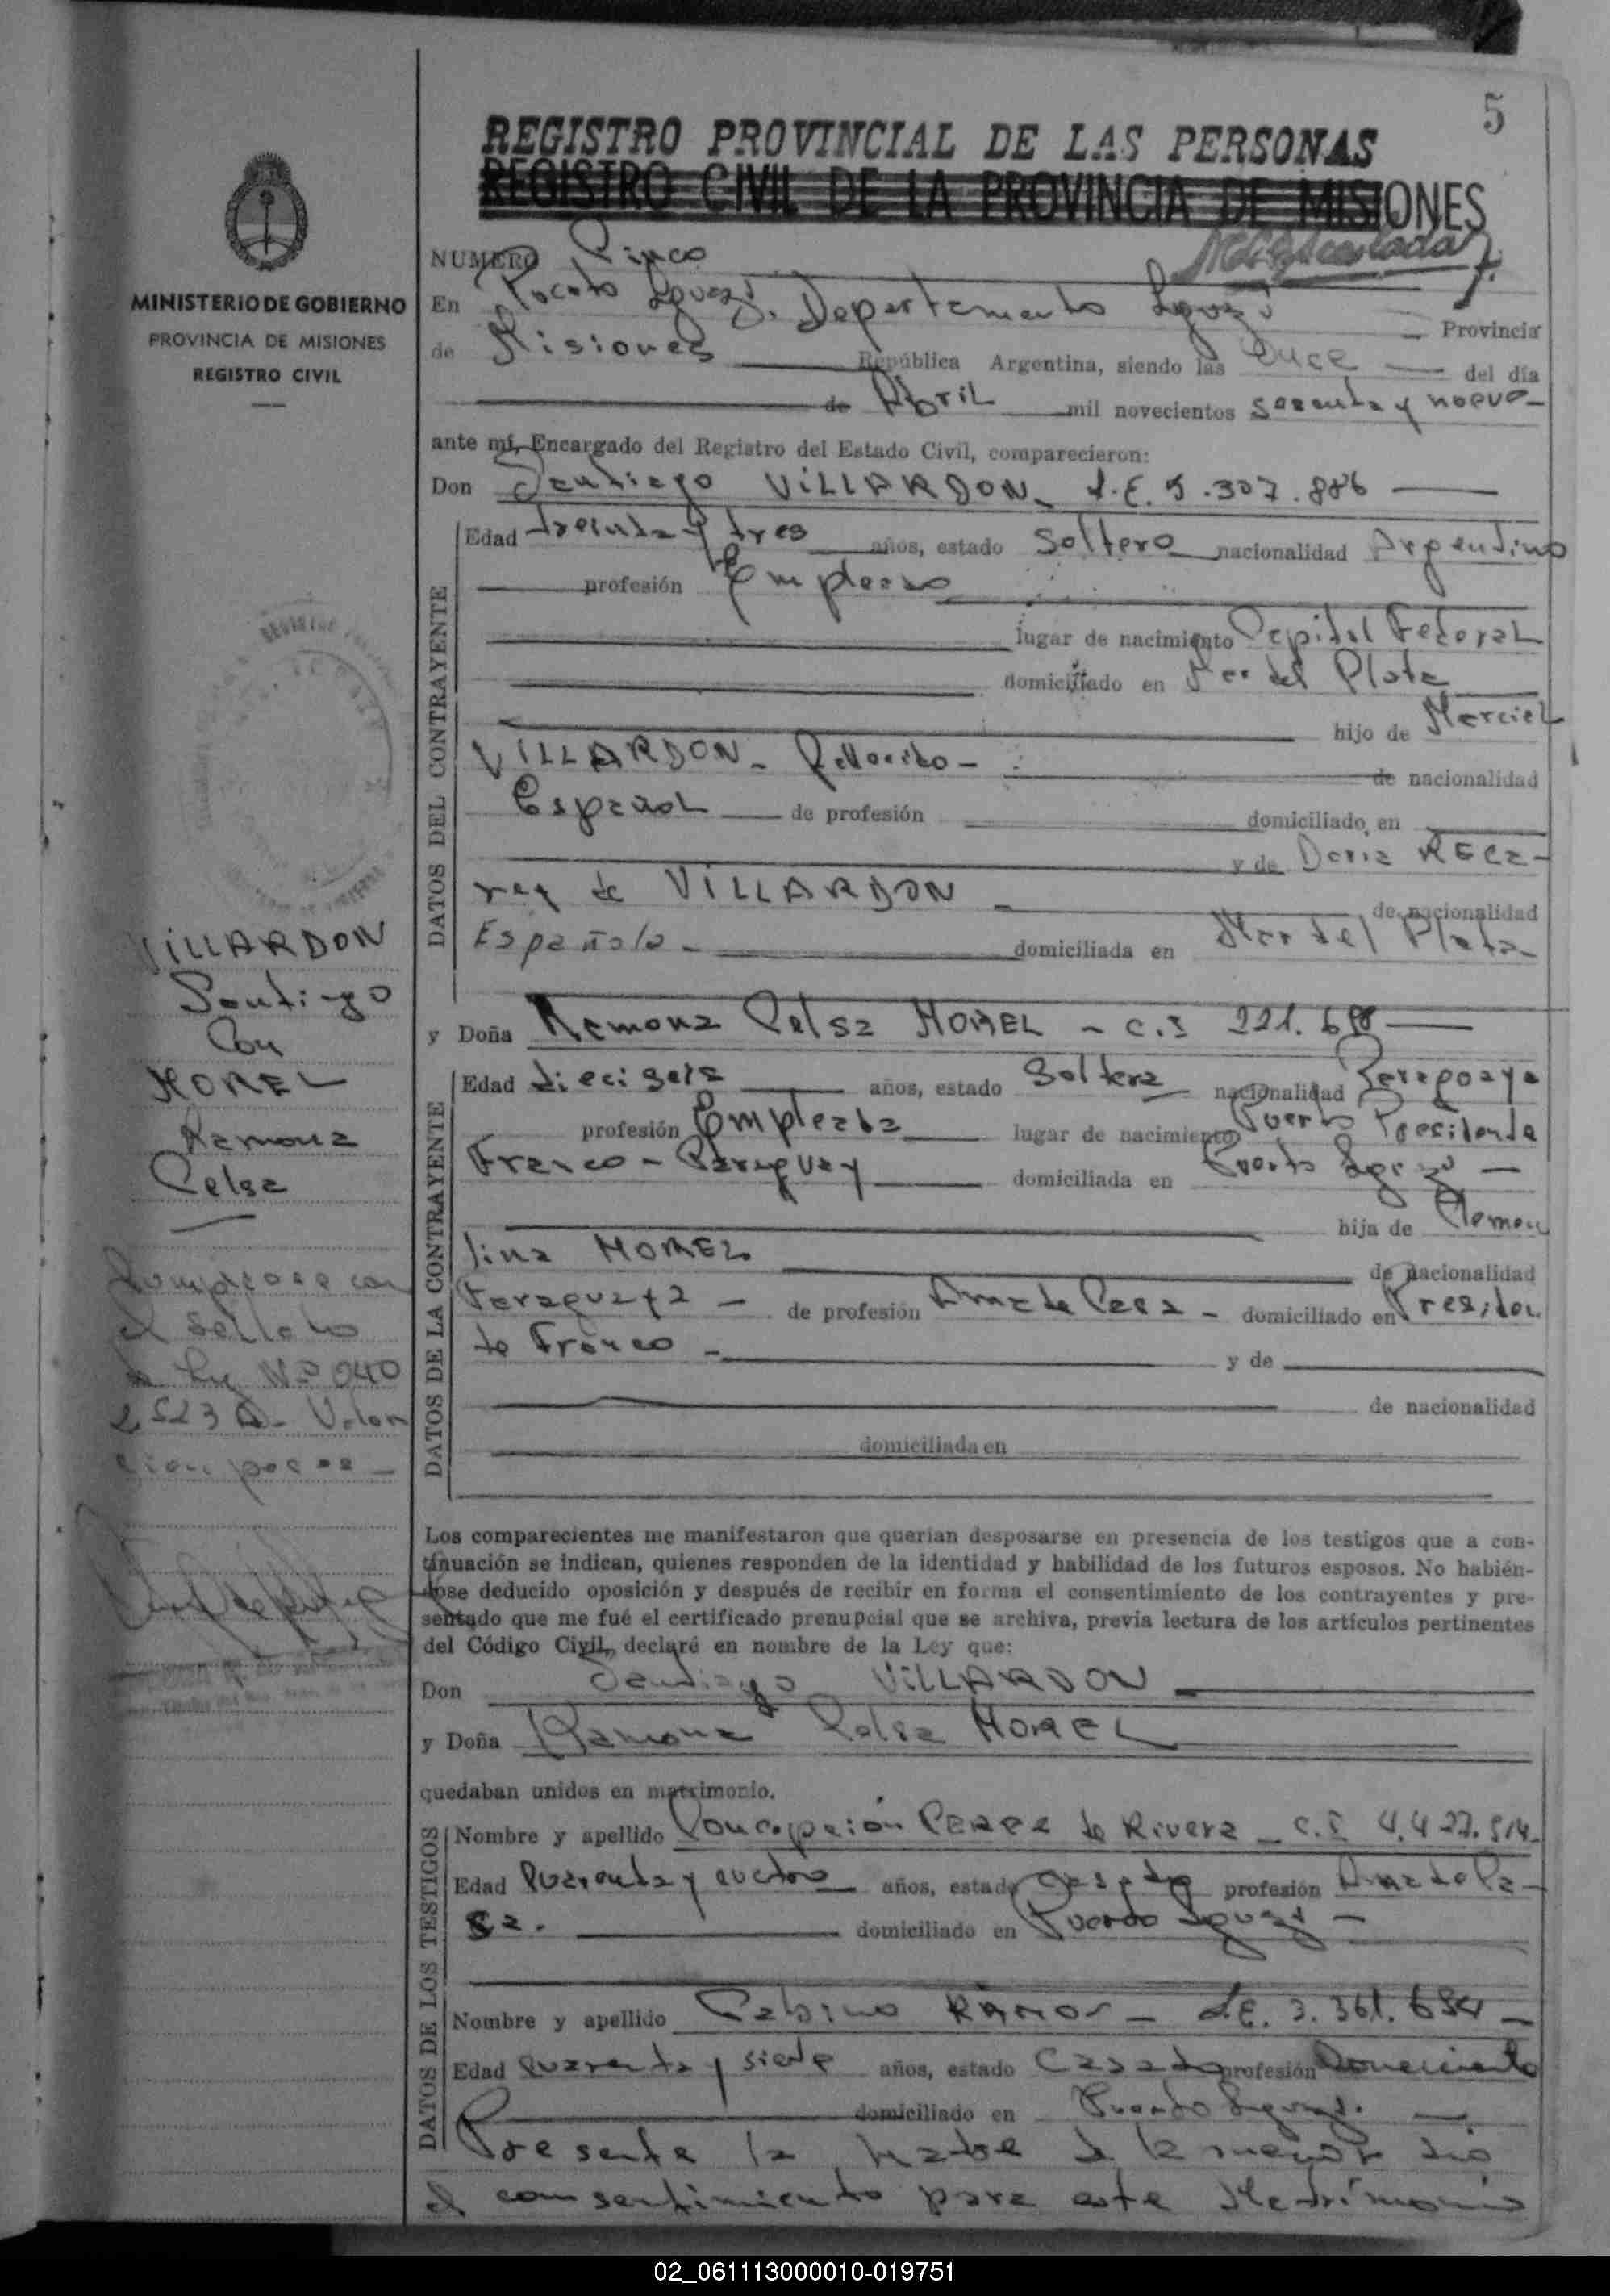 5
REGISTRO PROVINCIAL DE LAS PERSONAS
REGISTRO CIVIL DE LA PROVINCIA DE MISIONES
MINISTERIO DE GOBIERNO
PROVINCIA DE MISIONES
REGISTRO CIVIL
NUMERO Cinco
En Puerto Iguazú. Departamento Iguazú Provincia
de Misiones República Argentina, siendo las Once del día
de Abril mil novecientos sesenta y nueve
ante mí, Encargado del Registro del Estado Civil, comparecieron:
Don Santiago VILLARDON L.E. 5.307.886
DATOS DEL CONTRAYENTE
Edad treinta y tres años, estado Soltero nacionalidad Argentino
profesión Empleado
lugar de nacimiento Capital Federal
domiciliado en Mar del Plata
hijo de Marcial
VILLARDON - Fallecido - de nacionalidad
Español de profesión domiciliado en
y de
de VILLARDON - de nacionalidad
Española - domiciliada en Mar del Plata -
y Doña Ramona Celsa MOREL - C.I 221.698
DATOS DE LA CONTRAYENTE
Edad dieciseis años, estado Soltera nacionalidad Paraguaya
profesión Empleada lugar de nacimiento Puerto Presidente
Franco - Paraguay domiciliada en Puerto Iguazú -
hija de Clemen
tina MOREL de nacionalidad
Paraguaya - de profesión Ama de Casa - domiciliado en Presiden
te Franco - y de
de nacionalidad
domiciliada en
VILLARDON
Santiago
Con
MOREL
Ramona
Celsa
el sellado
Ley Nº 040
Los comparecientes me manifestaron que querían desposarse en presencia de los testigos que a con-
tinuación se indican, quienes responden de la identidad y habilidad de los futuros esposos. No habién-
dose deducido oposición y después de recibir en forma el consentimiento de los contrayentes y pre-
sentado que me fué el certificado prenupcial que se archiva, previa lectura de los artículos pertinentes
del Código Civil, declaré en nombre de la Ley que:
Don Santiago VILLARDON
y Doña Ramona Celsa MOREL
quedaban unidos en matrimonio.
DATOS DE LOS TESTIGOS
Nombre y apellido Concepción PEREZ de Rivera - C.I 4.427.514.
Edad Cuarenta y cuatro años, estado Casada profesión Ama de Ca-
sa. domiciliado en Puerto Iguazú -
DATOS DE LOS TESTIGOS
Nombre y apellido RAMOS - L.E. 3.361.684 -
Edad Cuarenta y siete años, estado Casado profesión Comerciante
domiciliado en Puerto Iguazú.
Presente la Madre de la menor dió
el consentimiento para este Matrimonio
02_061113000010-019751